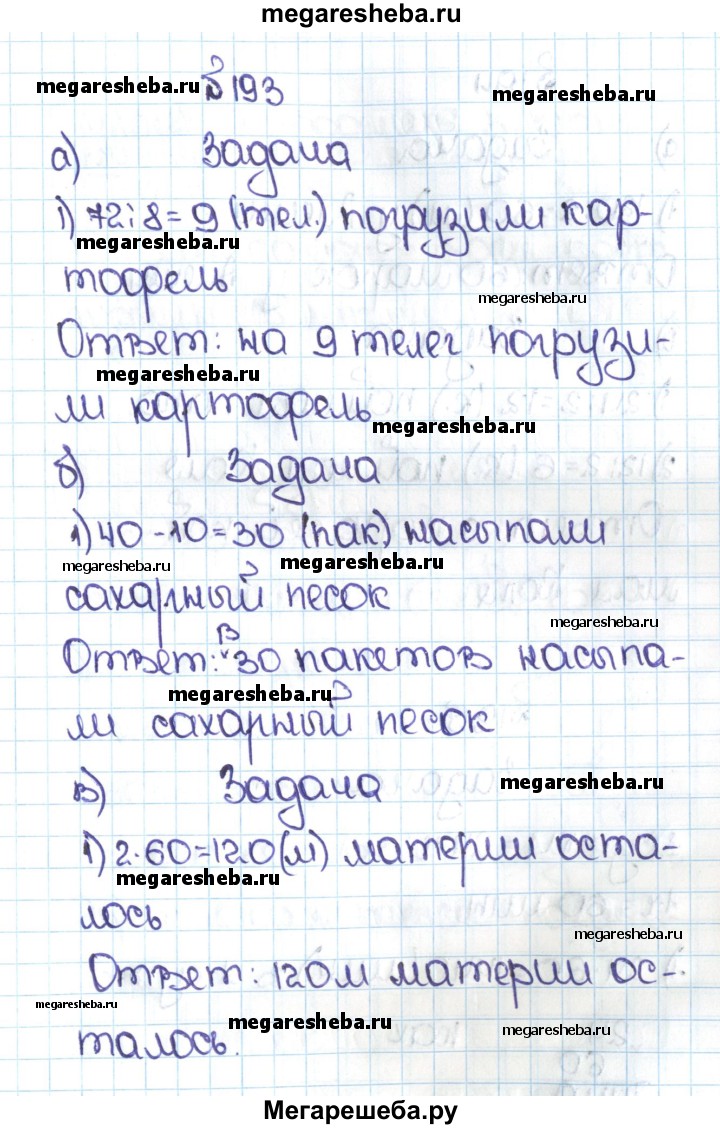 megaresheba.ru
№ 193
megaresheba.ru megaresheba.ru
а) Задача
1) 72 : 8 = 9 (тел.) погрузили кар-
megaresheba.ru
тофель
megaresheba.ru
Ответ: на 9 телег погрузи-
megaresheba.ru
ли картофель
megaresheba.ru
б) Задача
1) 40 - 10 = 30 (пак) насыпали
megaresheba.ru megaresheba.ru
сахарный песок
megaresheba.ru
Ответ: в 30 пакетов насыпа-
megaresheba.ru
ли сахарный песок
в) Задача
megaresheba.ru
1) 2 · 60 = 120 (м) материи оста-
megaresheba.ru
лось
megaresheba.ru
Ответ: 120 м материи ос-
megaresheba.ru
megaresheba.ru
megaresheba.ru
талось.
Мегарешеба.ру